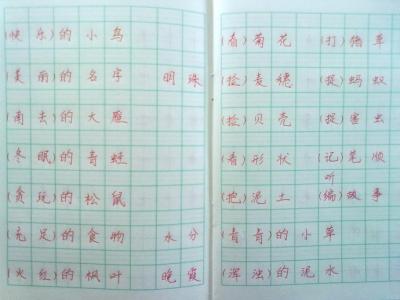 (快乐)的小鸟
(美丽)的名字 明珠
(南去)的大雁
(冬眠)的青蛙
(贪玩)的松鼠
(充足)的食物 水分
(火红)的枫叶 晚霞
(看)菊花 (打)猪草
(捡)麦穗 (捉)蚂蚁
(捡)贝壳 (捉)害虫
(看)形状 (记)笔顺
听
(挖)泥土 (编)故事
(青青)的小草
(浑浊)的泥水